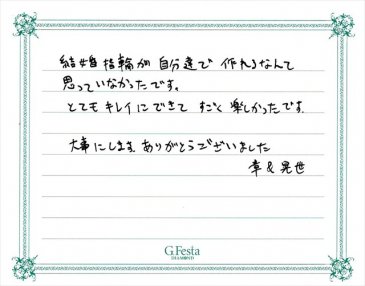 結婚指輪が自分達で作れるなんて
思っていなかったです。
とてもキレイにできてすごく楽しかったです。
大事にします。ありがとうございました
幸&晃世
G.Festa
DIAMOND